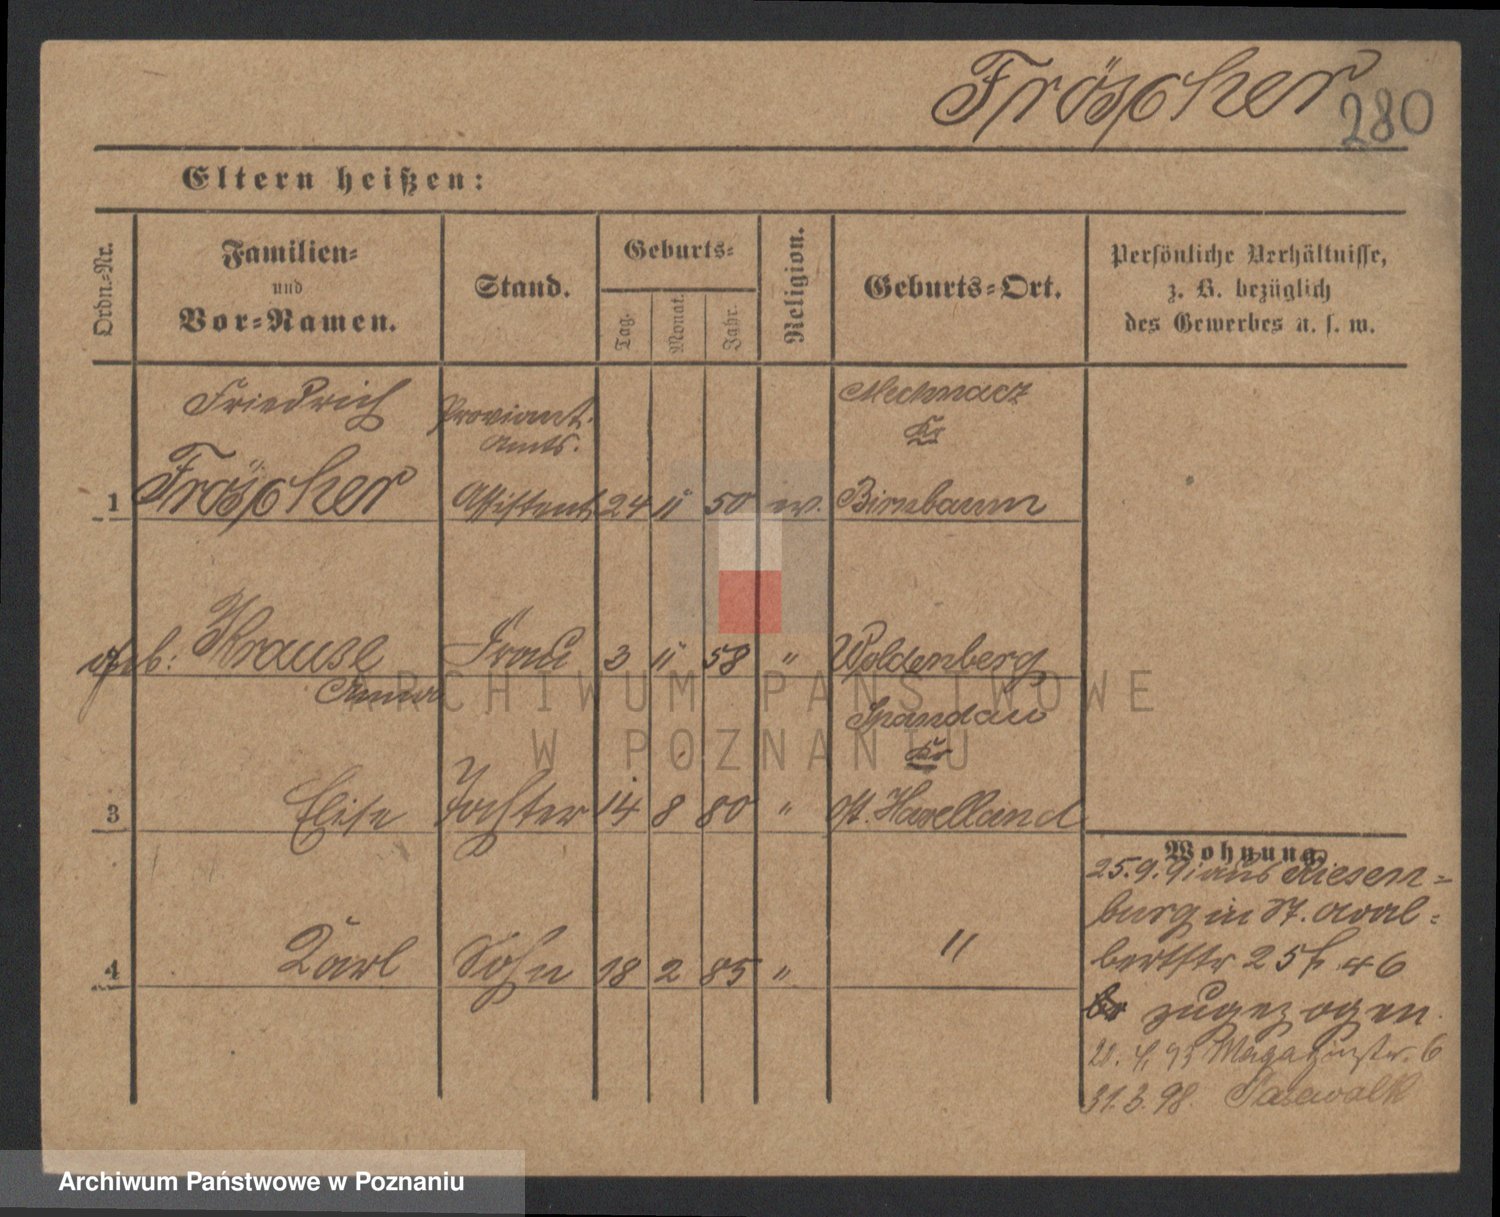 Fröscher
280
Eltern heißen:
Ordn.-Nr.
Familien-
und
Vor-Namen.
Stand.
Geburts-
Tag.
Monat.
Jahr.
Religion.
Geburts-Ort.
Persönliche Verhältnisse,
z. B. bezüglich
des Gewerbes u. s. w.
Friedrich Proviant. Mechnacz
Amts. Kr
1 Fröscher Assistent 24 11 50 ev. Birnbaum
geb: Krause Frau 3 11 58 " Woldenberg
Anna
Spandau
Kr
3 Elise Tochter 14 8 80 " Ost. Havelland
4 Karl Sohn 18 2 85 " "
Wohnung.
25.9.91 aus Riesen-
burg in St. Adal-
bertstr 25 46
zugezogen.
Magazinstr. 6
31.3.98. Pasewalk
ARCHIWUM PAŃSTWOWE
W POZNANIU
Archiwum Państwowe w Poznaniu